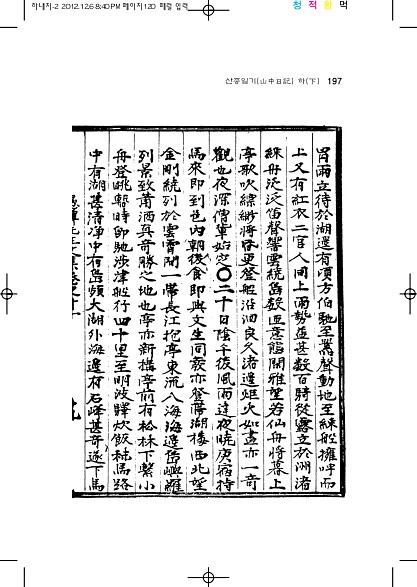 하내지-2 2012.12.6 8:40 PM 페이지120 페광 입력
청 적 황 먹
산중일기(山中日記) 하(下) 197
冒雨立待於湖邊有頃方伯馳至暠聲動地至綵船擁呼而
上又有紅衣二官人同上雨勢造甚數百騎從露立於洲渚
綵舟泛泛笛聲響雲繞島數匝意態閑雅望若仙舟將暮上
亭歌吹繽紛將昏更登船沿洄良久渚邊炬火如晝亦一奇
觀也夜深僧軰始定○二十日陰午後風雨達夜曉庚宿待
馬來即到邑內朝後食即與文生同衾亦登蓴湖樓西北望
金剛繞列於雲霄間一帶長江抱亭東流入海海邊島嶼羅
列景致蕭洒真奇勝之地也亭亦新構亭前有松林下繫小
舟登眺移時即馳涉津船行四十里至明波驛炊飯秣馬路
中有湖甚清淨中有島頻大湖外海邊有石峰甚奇遂下馬